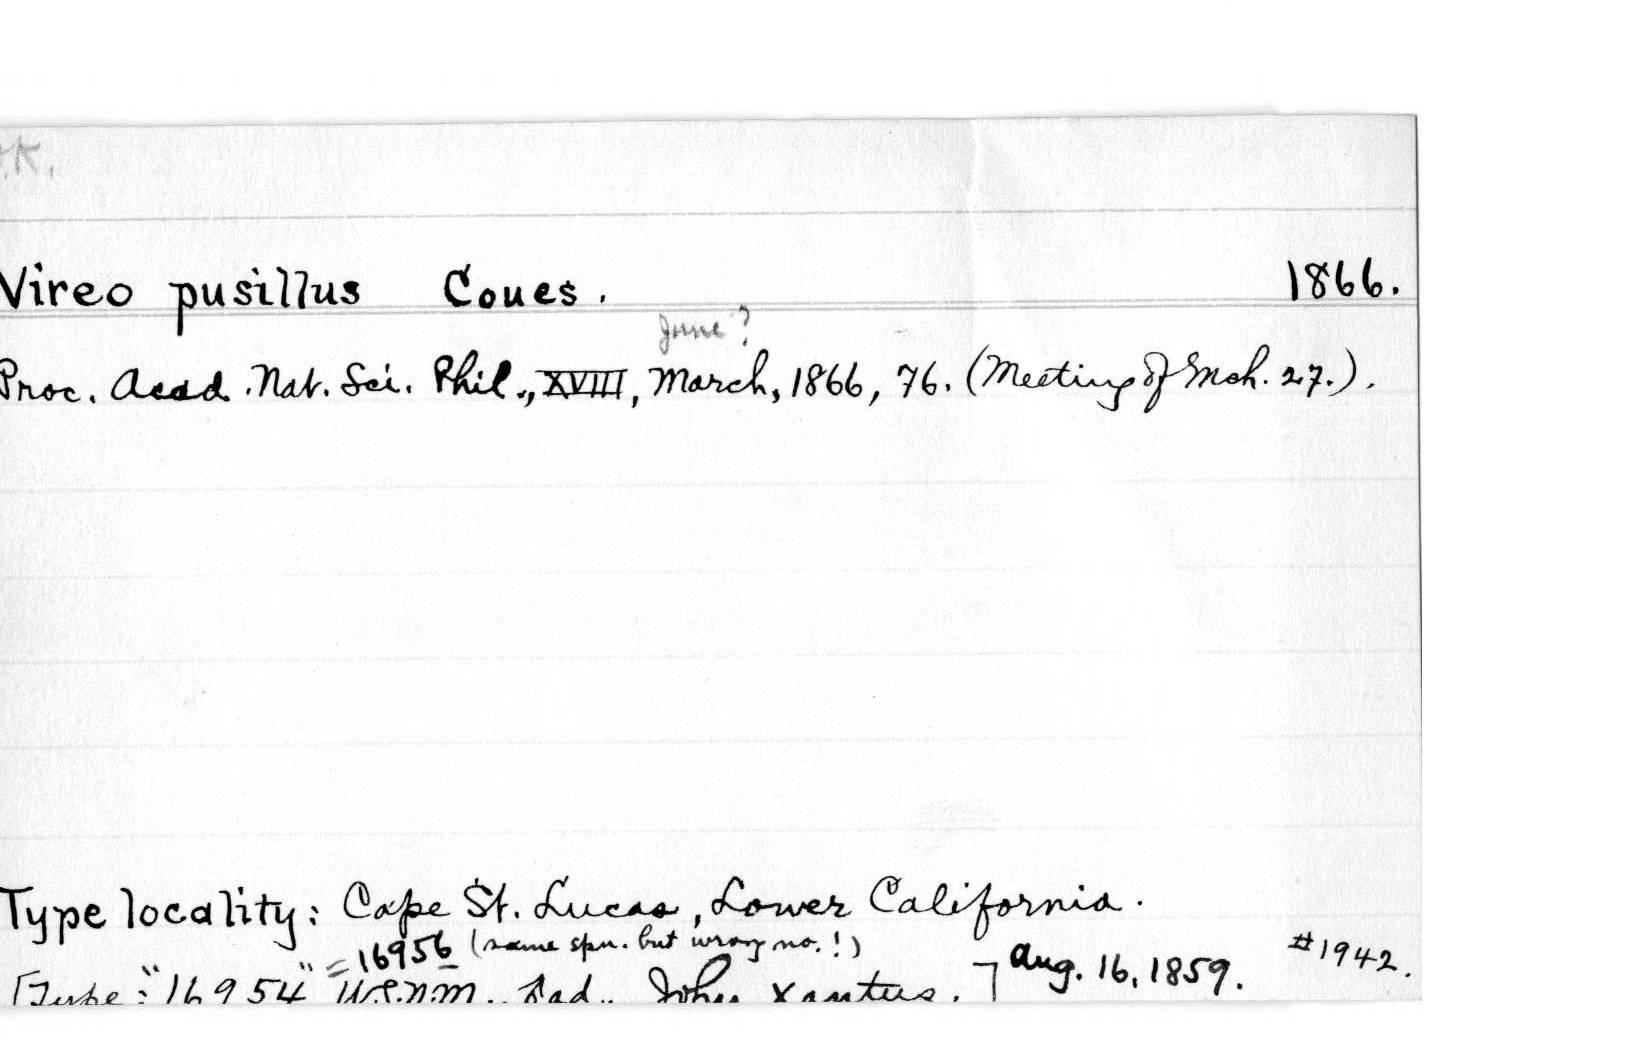 O.K.
Vireo pusillus Coues. 1866.
June?
Proc. Acad. Nat. Sci. Phil., XVIII, March, 1866, 76. (Meeting of Mch. 27.).
Type locality: Cape St. Lucas, Lower California.
= 16956 (same spn. but wrong no.!)
[Type: "16954" U.S.N.M. Ad. John Xantus.] Aug. 16, 1859. #1942.